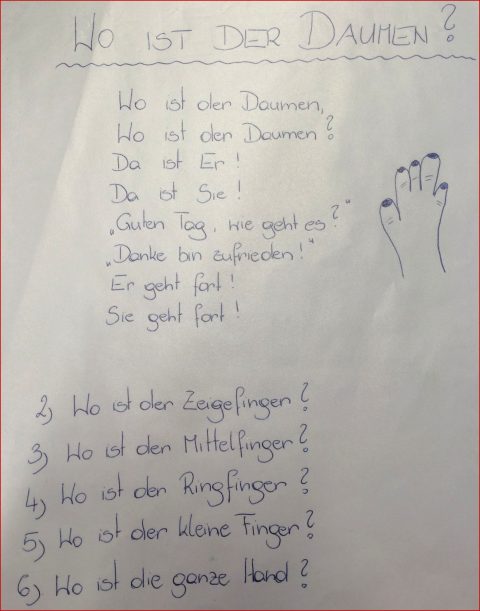 WO IST DER DAUMEN?
Wo ist der Daumen,
Wo ist der Daumen?
Da ist Er!
Da ist Sie!
„Guten Tag, wie geht es?“
„Danke bin zufrieden!“
Er geht fort!
Sie geht fort!
2) Wo ist der Zeigefinger?
3) Wo ist der Mittelfinger?
4) Wo ist der Ringfinger?
5) Wo ist der kleine Finger?
6) Wo ist die ganze Hand?